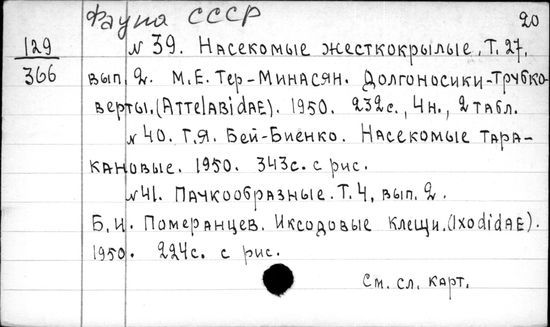 Фауна СССР
20
129
366
№ 39. Насекомые жесткокрылые. Т. 27,
вып. 2. М.Е. Тер-Минасян. Долгоносики-трубко-
верты. (Attelabidae). 1950. 232с., 4н., 2 табл.
№ 40. Г.Я. Бей-Биенко. Насекомые тара-
кановые. 1950. 343с. с рис.
№ 41. Паукообразные. Т. 4, вып. 2.
Б.И. Померанцев. Иксодовые клещи. (Ixodidae).
1950. 224с. с рис.
См. сл. карт.